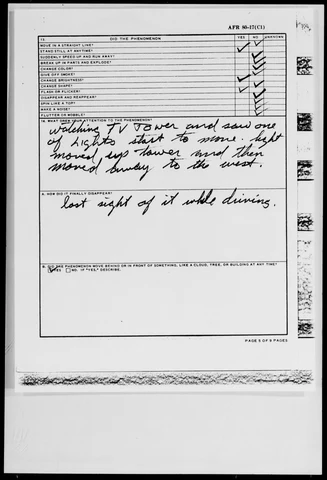 AFR 80-17(C1)
13. DID THE PHENOMENON YES NO UNKNOWN
MOVE IN A STRAIGHT LINE?
STAND STILL AT ANYTIME?
SUDDENLY SPEED UP AND RUN AWAY?
BREAK UP IN PARTS AND EXPLODE?
CHANGE COLOR?
GIVE OFF SMOKE?
CHANGE BRIGHTNESS?
CHANGE SHAPE?
FLASH OR FLICKER?
DISAPPEAR AND REAPPEAR?
SPIN LIKE A TOP?
MAKE A NOISE?
FLUTTER OR WOBBLE?
WHAT DREW YOUR ATTENTION TO THE PHENOMENON?
watching TV Tower and saw one
of Lights start to move. light
moved up tower and then
moved away to the west.
HOW DID IT FINALLY DISAPPEAR?
lost sight of it while driving.
DID THE PHENOMENON MOVE BEHIND OR IN FRONT OF SOMETHING, LIKE A CLOUD, TREE, OR BUILDING AT ANY TIME?
YES NO. IF "YES," DESCRIBE.
PAGE 5 OF 9 PAGES